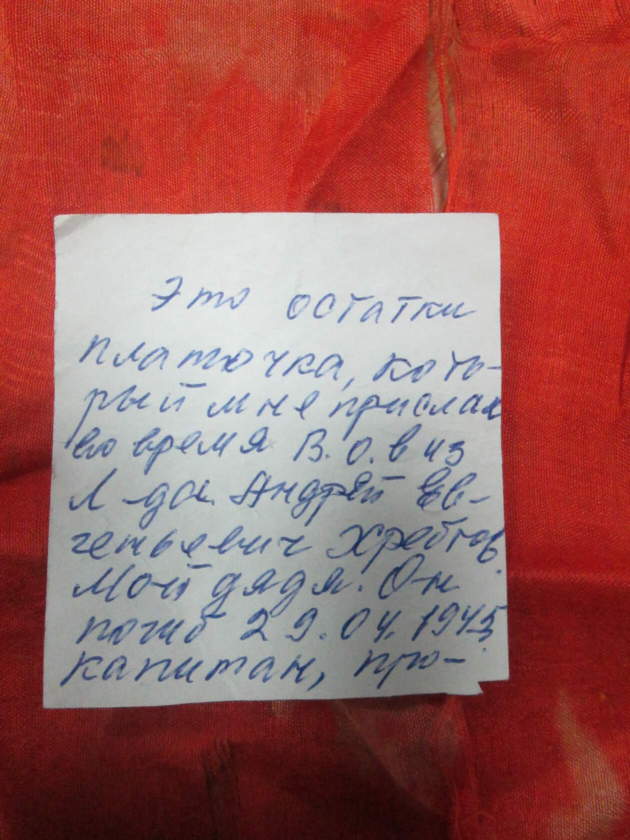 Это остатки
платочка, кото-
рый мне прислал
во время В.О.в из
Л-да Андрей Ев-
геньевич Хребтов.
Мой дядя. Он
погиб 29.04.1945
капитан, про-